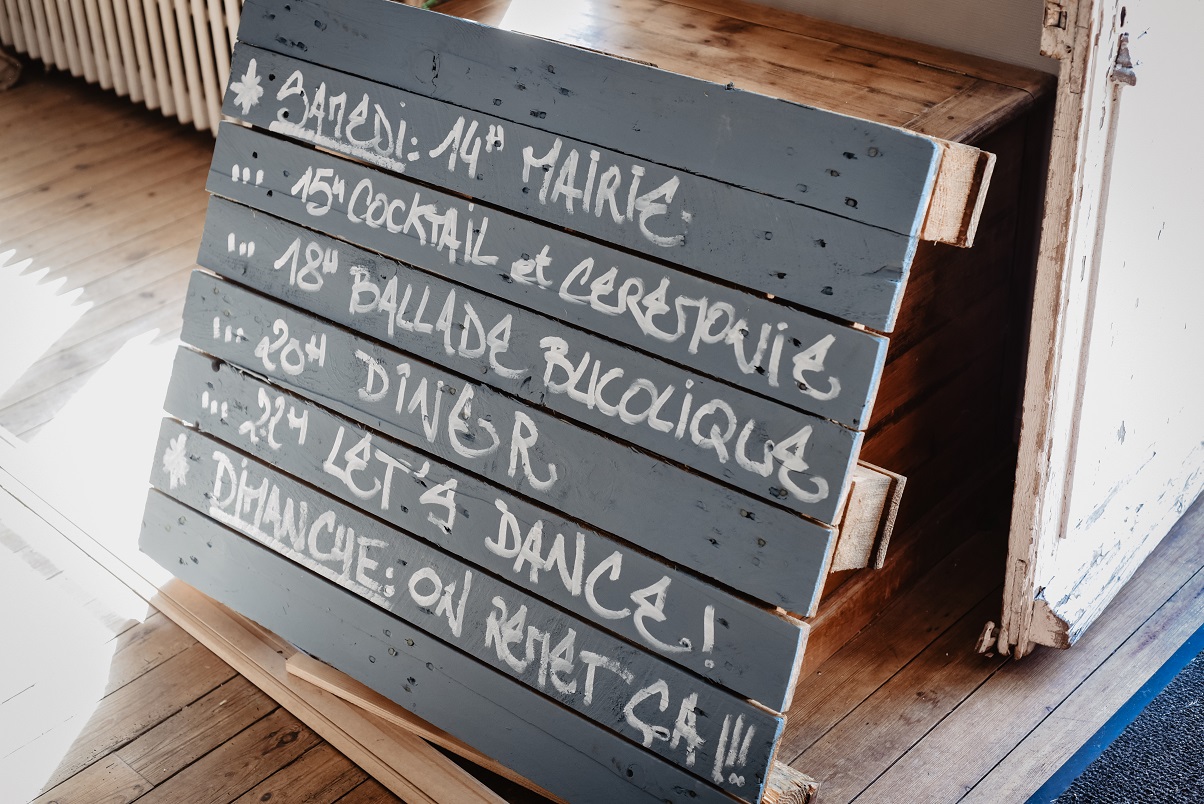 * SAMEDi: 14H MAiRiE.
... 15H COCKTAiL et CEREMONiE
... 18H BALLADE BUCOLiQUE
... 20H DîNER
... 22H LET'S DANCE!
* DiMANCHE: ON REMET ÇA!!!